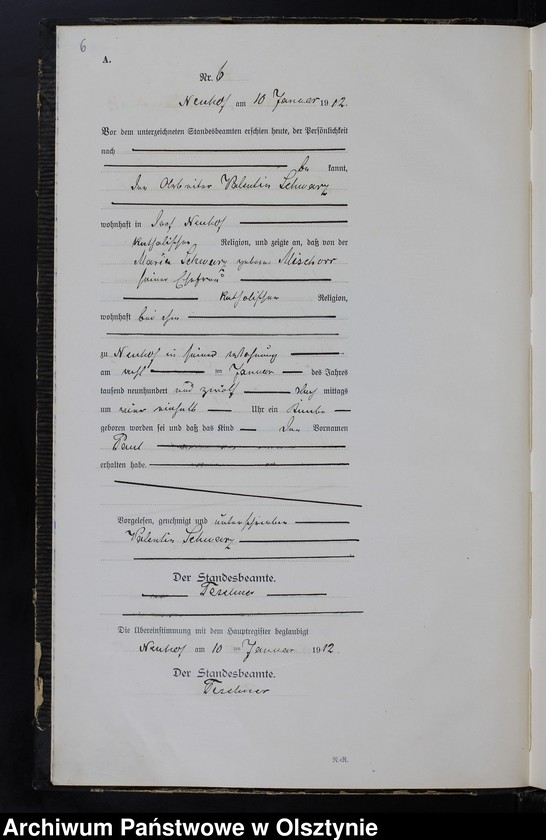 6
A.
Nr. 6
Neuhof am 10 Januar 1912.
Vor dem unterzeichneten Standesbeamten erschien heute, der Persönlichkeit
nach
be kannt,
der Arbeiter Valentin Schwarz
wohnhaft in Dorf Neuhof
katholischer Religion, und zeigte an, daß von der
Maria Schwarz geborene Mischorr
seiner Ehefrau
katholischer Religion,
wohnhaft bei ihm
zu Neuhof in seiner Wohnung
am acht ten Januar des Jahres
tausend neunhundert und zwölf Nach mittags
um einer einhalb Uhr ein Knabe
geboren worden sei und daß das Kind den Vornamen
Paul
erhalten habe.
Vorgelesen, genehmigt und unterschrieben
Valentin Schwarz
Der Standesbeamte.
Teschner
Die Übereinstimmung mit dem Hauptregister beglaubigt
Neuhof am 10 ten Januar 1912.
Der Standesbeamte.
Teschner
N.-R.
Archiwum Państwowe w Olsztynie